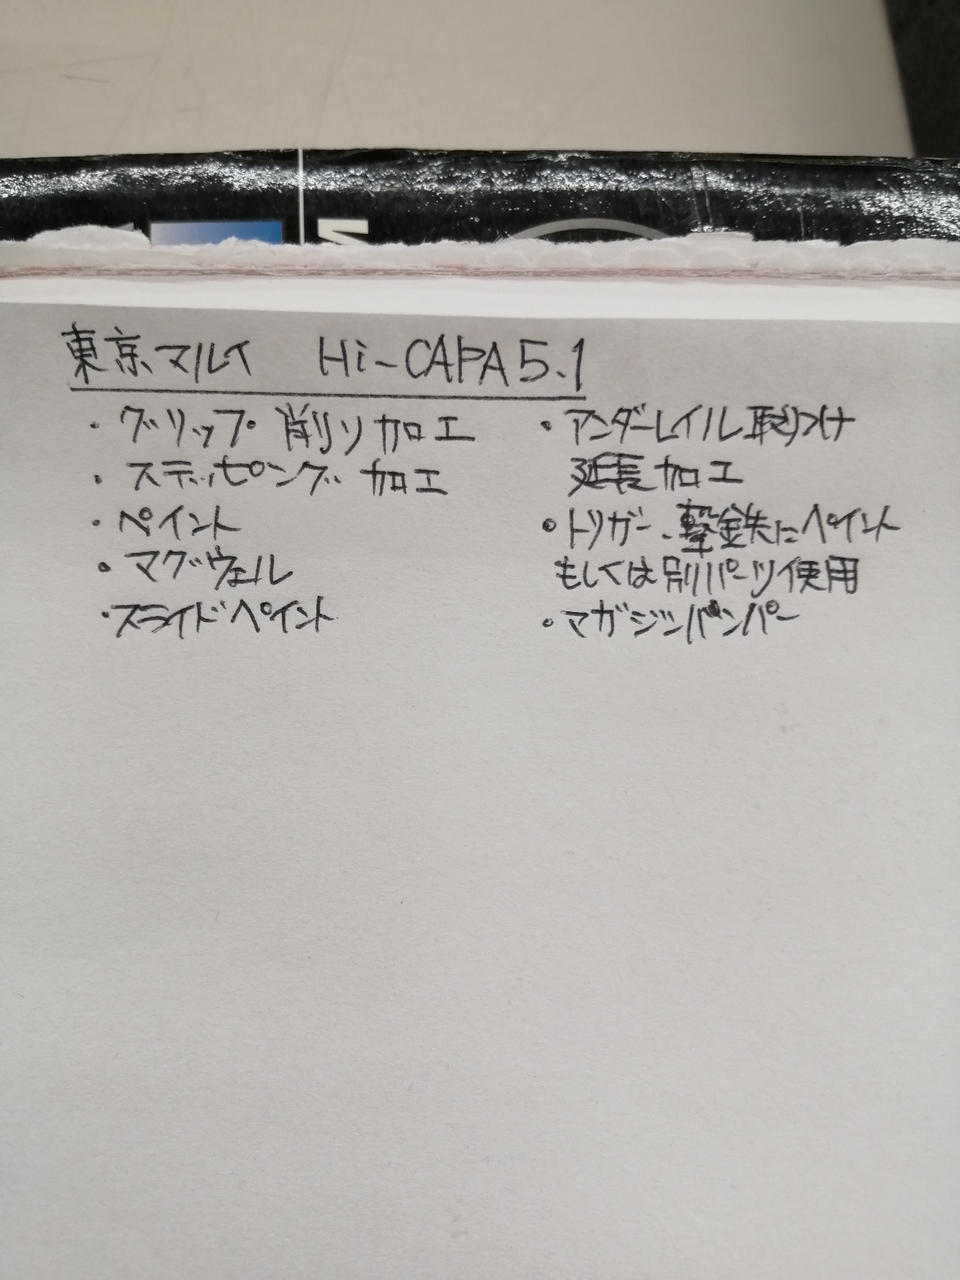 東京マルイ Hi-CAPA5.1
・グリップ 削り加工
・ステッピング加工
・ペイント
・マグウェル
・スライドペイント
・アンダーレイル取りつけ
延長加工
・トリガー、撃鉄にペイント
もしくは別パーツ使用
・マガジンバンパー